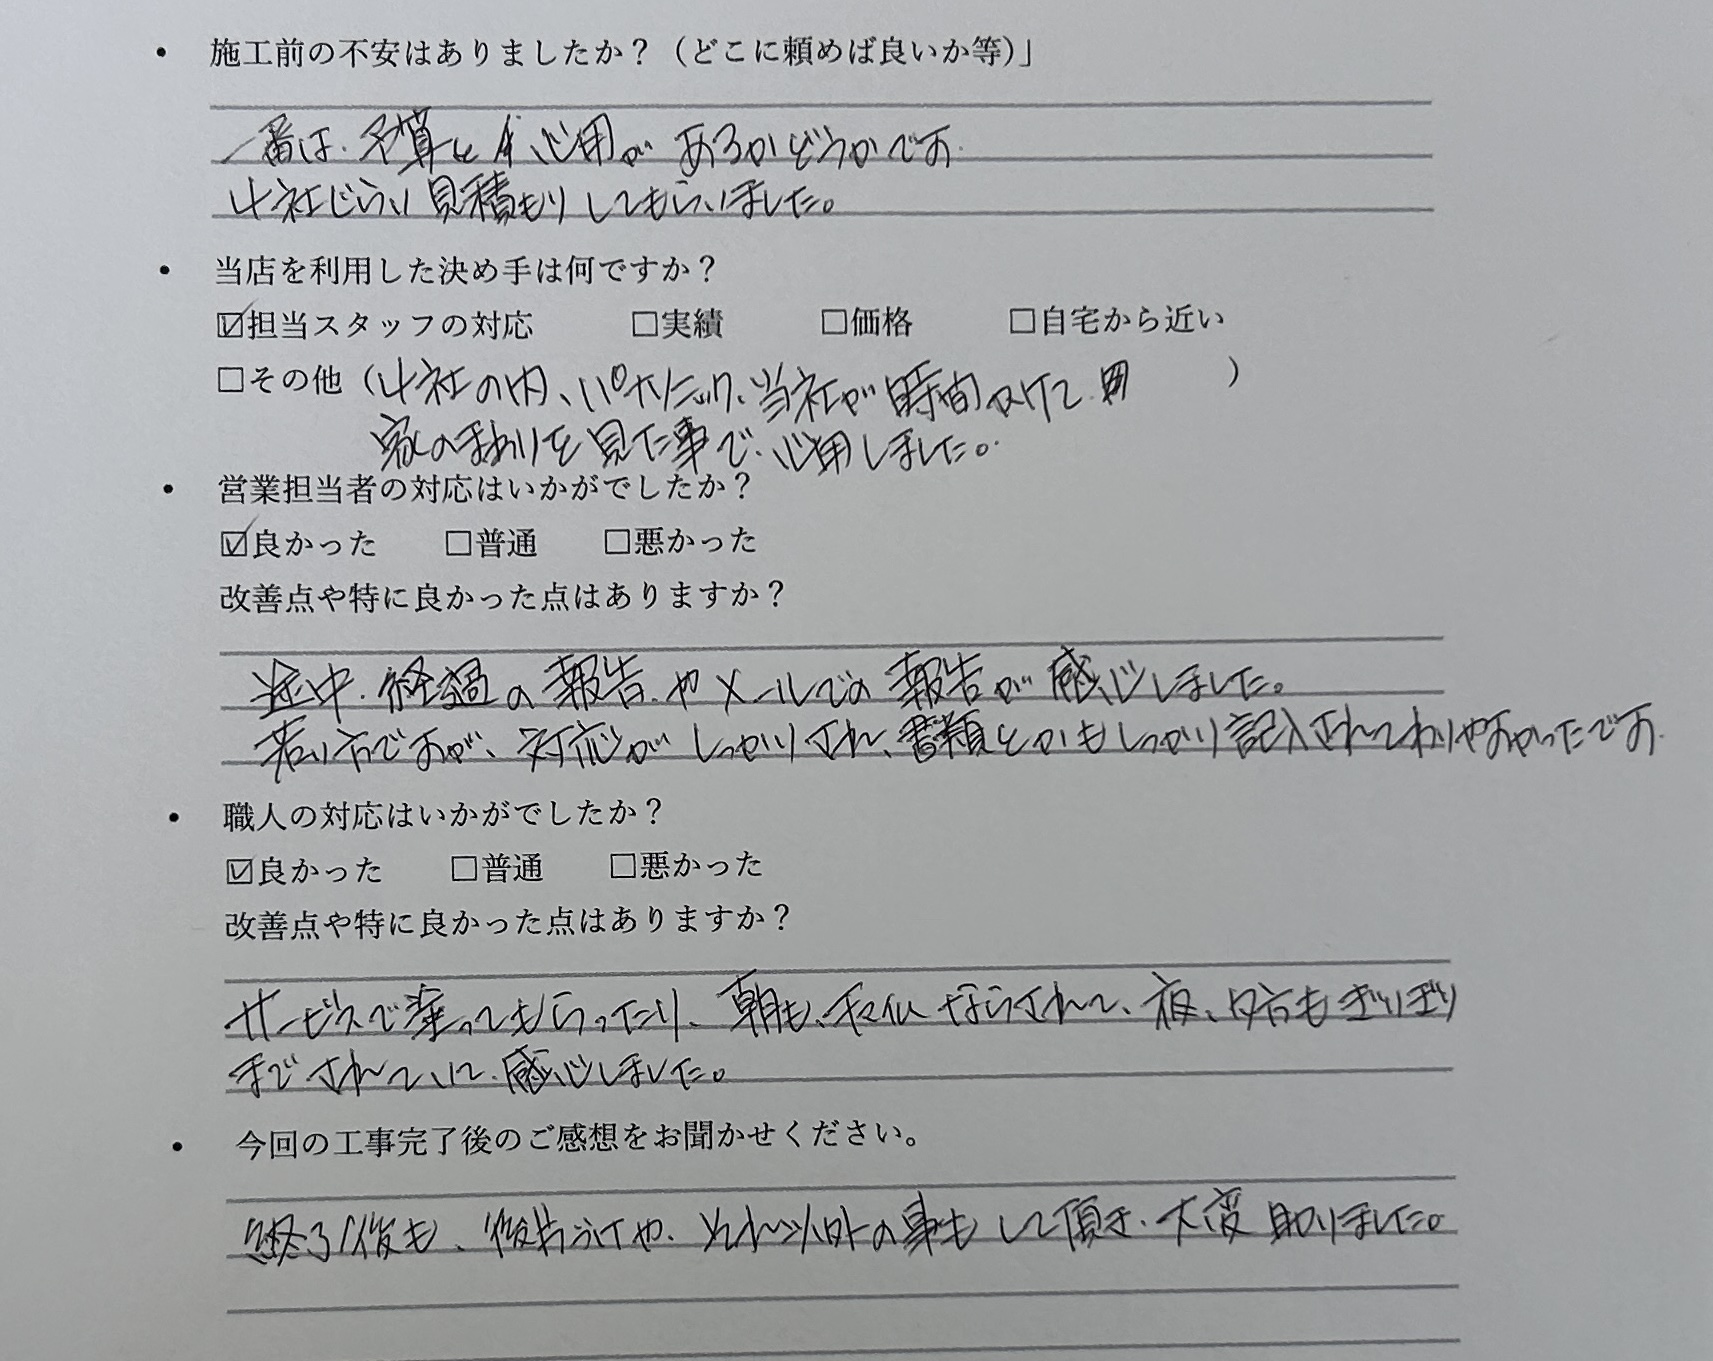 • 施工前の不安はありましたか？（どこに頼めば良いか等）」
一番は、予算と 心用が あるかどうかです
4社じらい 見積もり してもらいました。
• 当店を利用した決め手は何ですか？
☑担当スタッフの対応 □実績 □価格 □自宅から近い
□その他（4社の内、パナソニック、当社が時間かけて ）
家のまわりを見た事で、心用しました。
• 営業担当者の対応はいかがでしたか？
☑良かった □普通 □悪かった
改善点や特に良かった点はありますか？
途中、経過の報告、やメールでの報告が感心しました。
若い方ですが、対応がしっかりされ、書類とかもしっかり記入されてわりやすかったです
• 職人の対応はいかがでしたか？
☑良かった □普通 □悪かった
改善点や特に良かった点はありますか？
サービスで塗ってもらったり、朝も、 されて、夜、夕方もぎりぎり
までされていて、感心しました。
• 今回の工事完了後のご感想をお聞かせください。
終了後も、後片づけや、それ以外の事もして頂き、大変助りました。